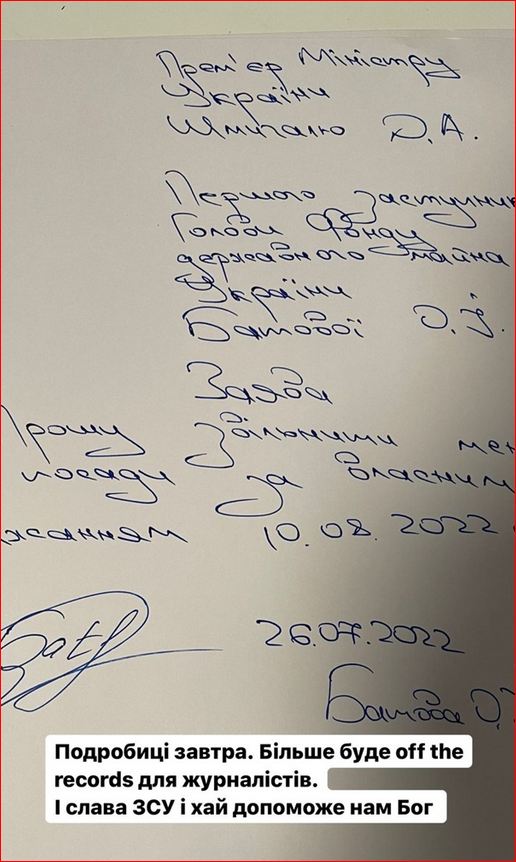 Прем'єр Міністру
України
Шмигалю Д.А.
Першого Заступник
Голови Фонду
державного майна
України
Батової О.І.
Заява
Прошу звільнити мен
посади за власним
жанням 10.08.2022
26.07.2022
Батова О.
Подробиці завтра. Більше буде off the
records для журналістів.
І слава ЗСУ і хай допоможе нам Бог